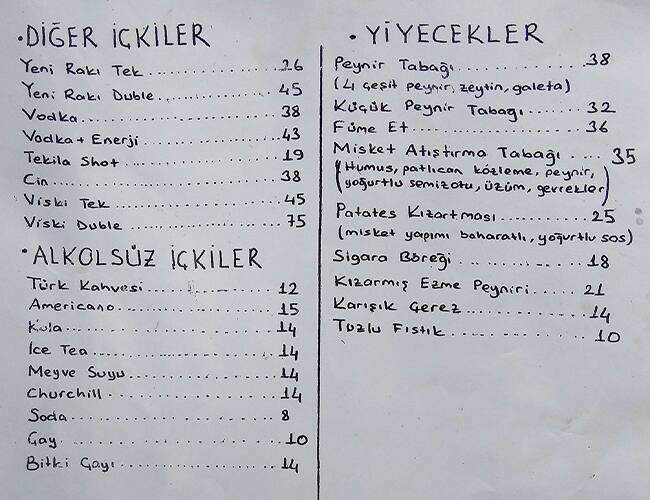 • DİĞER İÇKİLER
Yeni Rakı Tek ............... 26
Yeni Rakı Duble ............... 45
Vodka ............... 38
Vodka + Enerji ............... 43
Tekila Shot ............... 19
Cin ............... 38
Viski Tek ............... 45
Viski Duble ............... 75
• ALKOLSÜZ İÇKİLER
Türk Kahvesi ............... 12
Americano ............... 15
Kola ............... 14
Ice Tea ............... 14
Meyve Suyu ............... 14
Churchill ............... 14
Soda ............... 8
Çay ............... 10
Bitki Çayı ............... 14
• YİYECEKLER
Peynir Tabağı ............... 38
(4 çeşit peynir, zeytin, galeta)
Küçük Peynir Tabağı ............... 32
Füme Et ............... 36
Misket Atıştırma Tabağı .... 35
(Humus, patlıcan közleme, peynir,
yoğurtlu semizotu, üzüm, gevrekler)
Patates Kızartması ............... 25
(misket yapımı baharatlı, yoğurtlu sos)
Sigara Böreği ............... 18
Kızarmış Ezme Peyniri ............... 21
Karışık Çerez ............... 14
Tuzlu Fıstık ............... 10